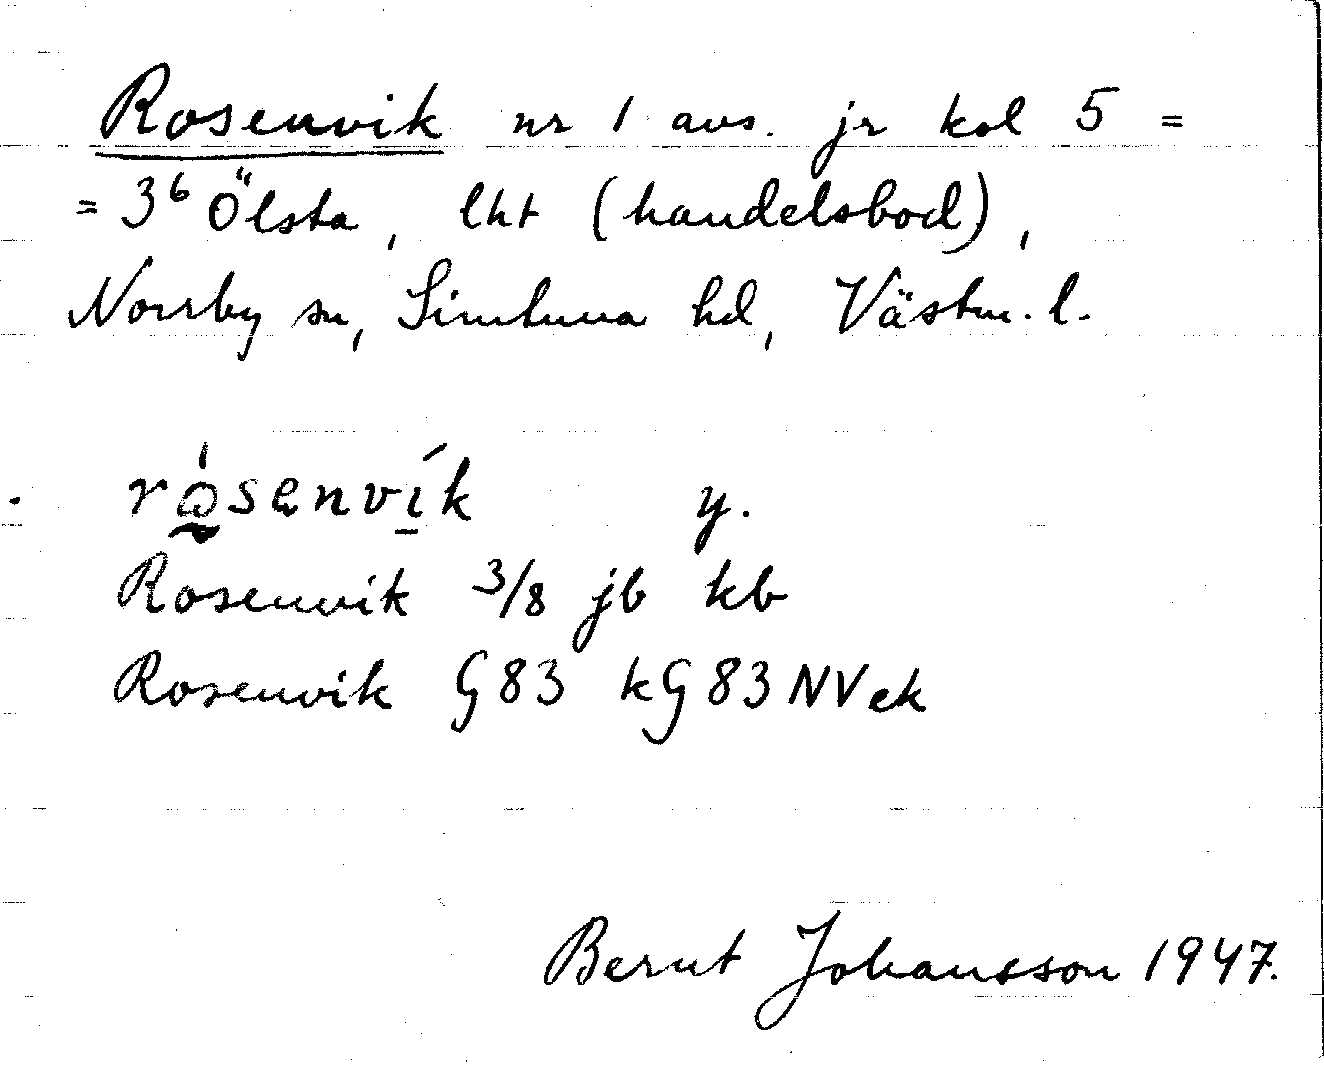 Rosenvik nr 1 avs. jr kol 5 =
= 3⁶ Ölsta, lht (handelsbod),
Norrby sn, Simtuna hd, Västm. l.
rósenvík y.
Rosenvik 3/8 jb kb
Rosenvik G83 kG83NVek
Bernt Johansson 1947.